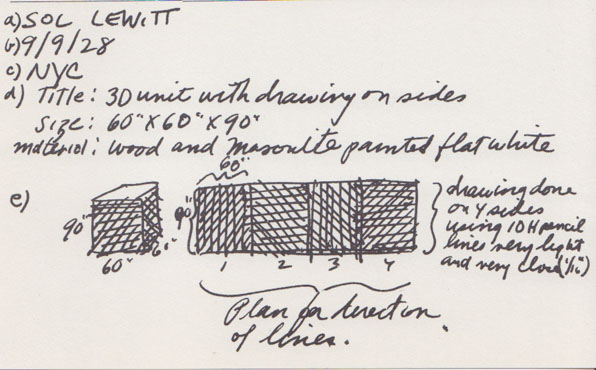 a) SOL LEWITT
b) 9/9/28
c) NYC
d) Title: 3D unit with drawing on sides
Size: 60" X 60" X 90"
material: wood and Masonite painted flat white
e)
90"
60"
60"
60"
90"
1 2 3 4
drawing done
on 4 sides
using 10H pencil
lines very light
and very close (1/16")
Plan for direction
of lines.